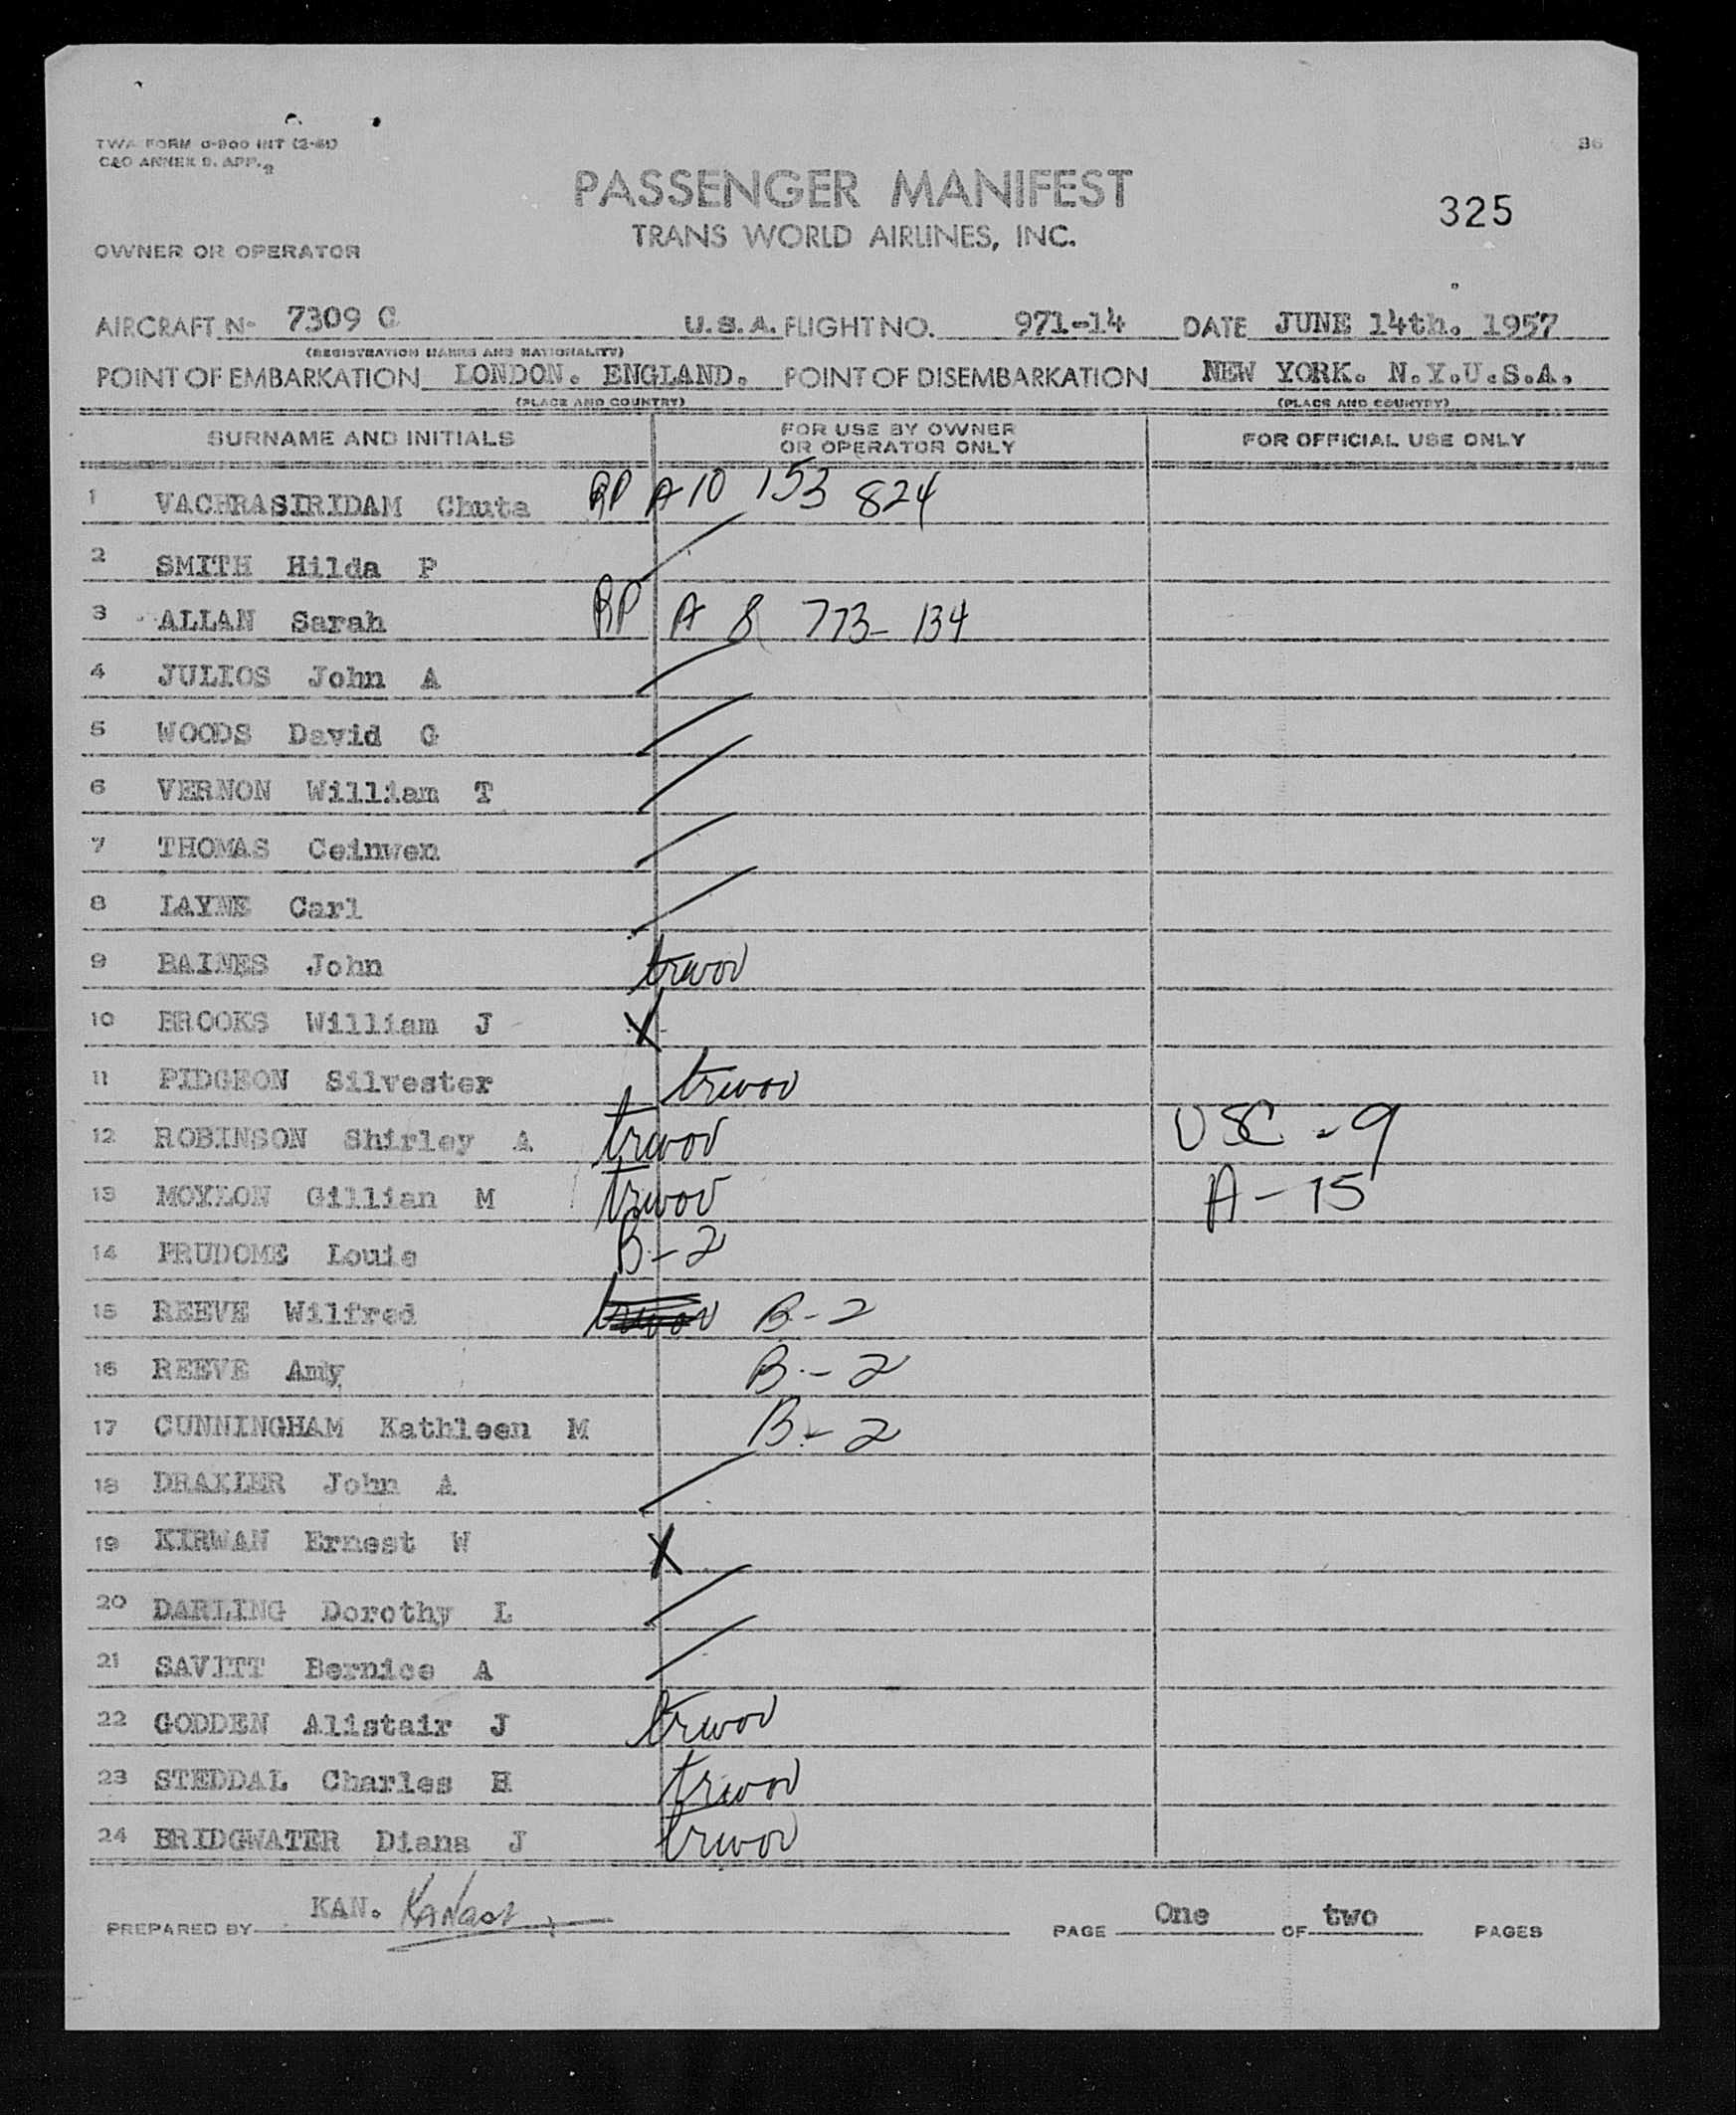 TWA FORM 0-800 INT (2-51)
CAO ANNEX 9. APP. 2
36
PASSENGER MANIFEST
325
TRANS WORLD AIRLINES, INC.
OWNER OR OPERATOR
AIRCRAFT No 7309 C U.S.A. FLIGHT NO. 971-14 DATE JUNE 14th. 1957
(REGISTRATION MARKS AND NATIONALITY)
POINT OF EMBARKATION LONDON. ENGLAND. POINT OF DISEMBARKATION NEW YORK. N.Y.U.S.A.
(PLACE AND COUNTRY) (PLACE AND COUNTRY)
SURNAME AND INITIALS FOR USE BY OWNER OR OPERATOR ONLY FOR OFFICIAL USE ONLY
1 VACHRASIRIDAM Chuta RP A10 153 824
2 SMITH Hilda P
3 ALLAN Sarah RP A 8 773-134
4 JULIOS John A
5 WOODS David G
6 VERNON William T
7 THOMAS Ceinwen
8 LAYNE Carl
9 BAINES John trwov
10 BROOKS William J X
11 PIDGEON Silvester trwov
12 ROBINSON Shirley A trwov USC - 9
13 MOYLON Gillian M trwov A - 15
14 PRUDOME Louis B-2
15 REEVE Wilfred trwov B-2
16 REEVE Amy B-2
17 CUNNINGHAM Kathleen M B-2
18 DRAXLER John A
19 KIRWAN Ernest W X
20 DARLING Dorothy L
21 SAVITT Bernice A
22 GODDEN Alistair J trwov
23 STEDDAL Charles H trwov
24 BRIDGWATER Diana J trwov
PREPARED BY KAN. PAGE One OF two PAGES